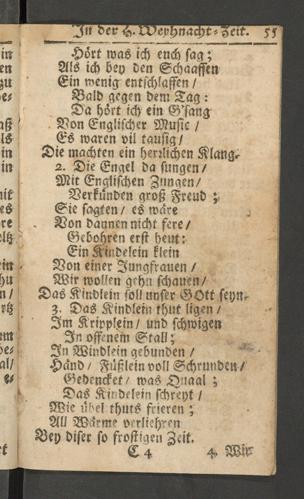 In der H. Weyhnacht-Zeit. 55
Hört was ich euch sag;
Als ich bey den Schaaffen
Ein wenig entschlaffen/
Bald gegen dem Tag:
Da hört ich ein G'sang
Von Englischer Music/
Es waren vil tausig/
Die machten ein herzlichen Klang.
2. Die Engel da sungen/
Mit Englischen Zungen/
Verkünden groß Freud;
Sie sagten/ es wäre
Von dannen nicht fere/
Gebohren erst heut:
Ein Kindelein klein
Von einer Jungfrauen/
Wir wollen gehn schauen/
Das Kindlein soll unser GOtt seyn.
3. Das Kindlein thut ligen/
Im Kripplein/ und schwigen
In offenem Stall;
In Windlein gebunden/
Händ/ Füßlein voll Schrunden/
Gedencket/ was Quaal;
Das Kindelein schreyt/
Wie übel thuts frieren;
All Wärme verliehren
Bey diser so frostigen Zeit.
C 4 4. Wir